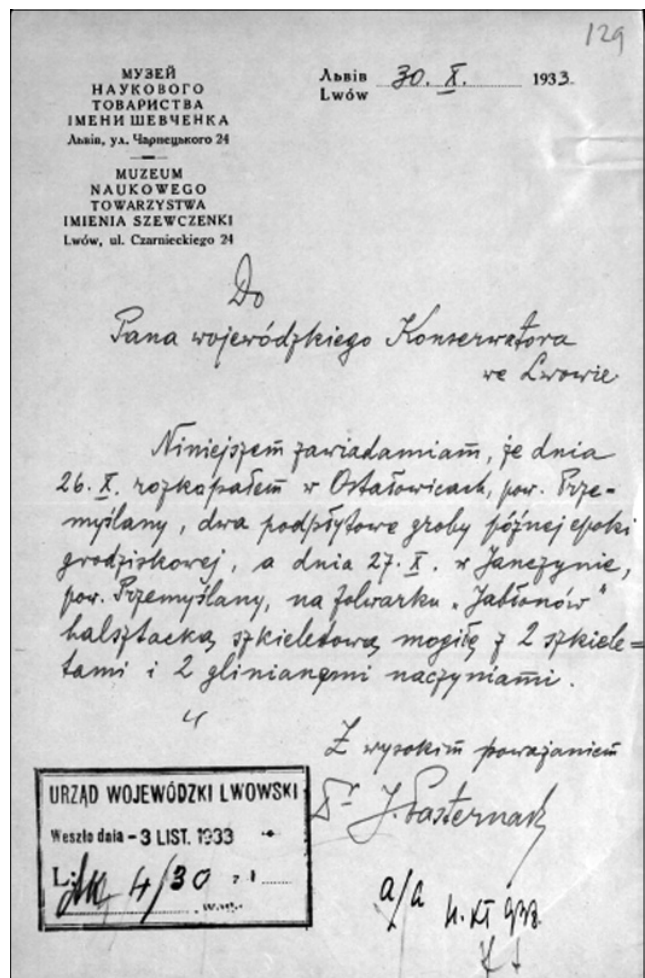 129
МУЗЕЙ
НАУКОВОГО
ТОВАРИСТВА
ІМЕНИ ШЕВЧЕНКА
Львів, ул. Чарнецького 24
MUZEUM
NAUKOWEGO
TOWARZYSTWA
IMIENIA SZEWCZENKI
Lwów, ul. Czarnieckiego 24
Львів 30. X. 1933.
Lwów
Do
Pana wojewódzkiego Konserwatora
we Lwowie
Niniejszem zawiadamiam, że dnia
26. X. rozkopałem w Ostałowicach, pow. Prze-
myślany, dwa podpłytowe groby późnej epoki
grodziskowej, a dnia 27. X. w Janczynie,
pow. Przemyślany, na folwarku „Jabłonów"
halsztacką szkieletową mogiłę z 2 szkiele=
tami i 2 glinianemi naczyniami.
Z wysokim poważaniem
Dr J. Pasternak
URZĄD WOJEWÓDZKI LWOWSKI
Weszło dnia - 3 LIST. 1933
L: 4/30
a/a